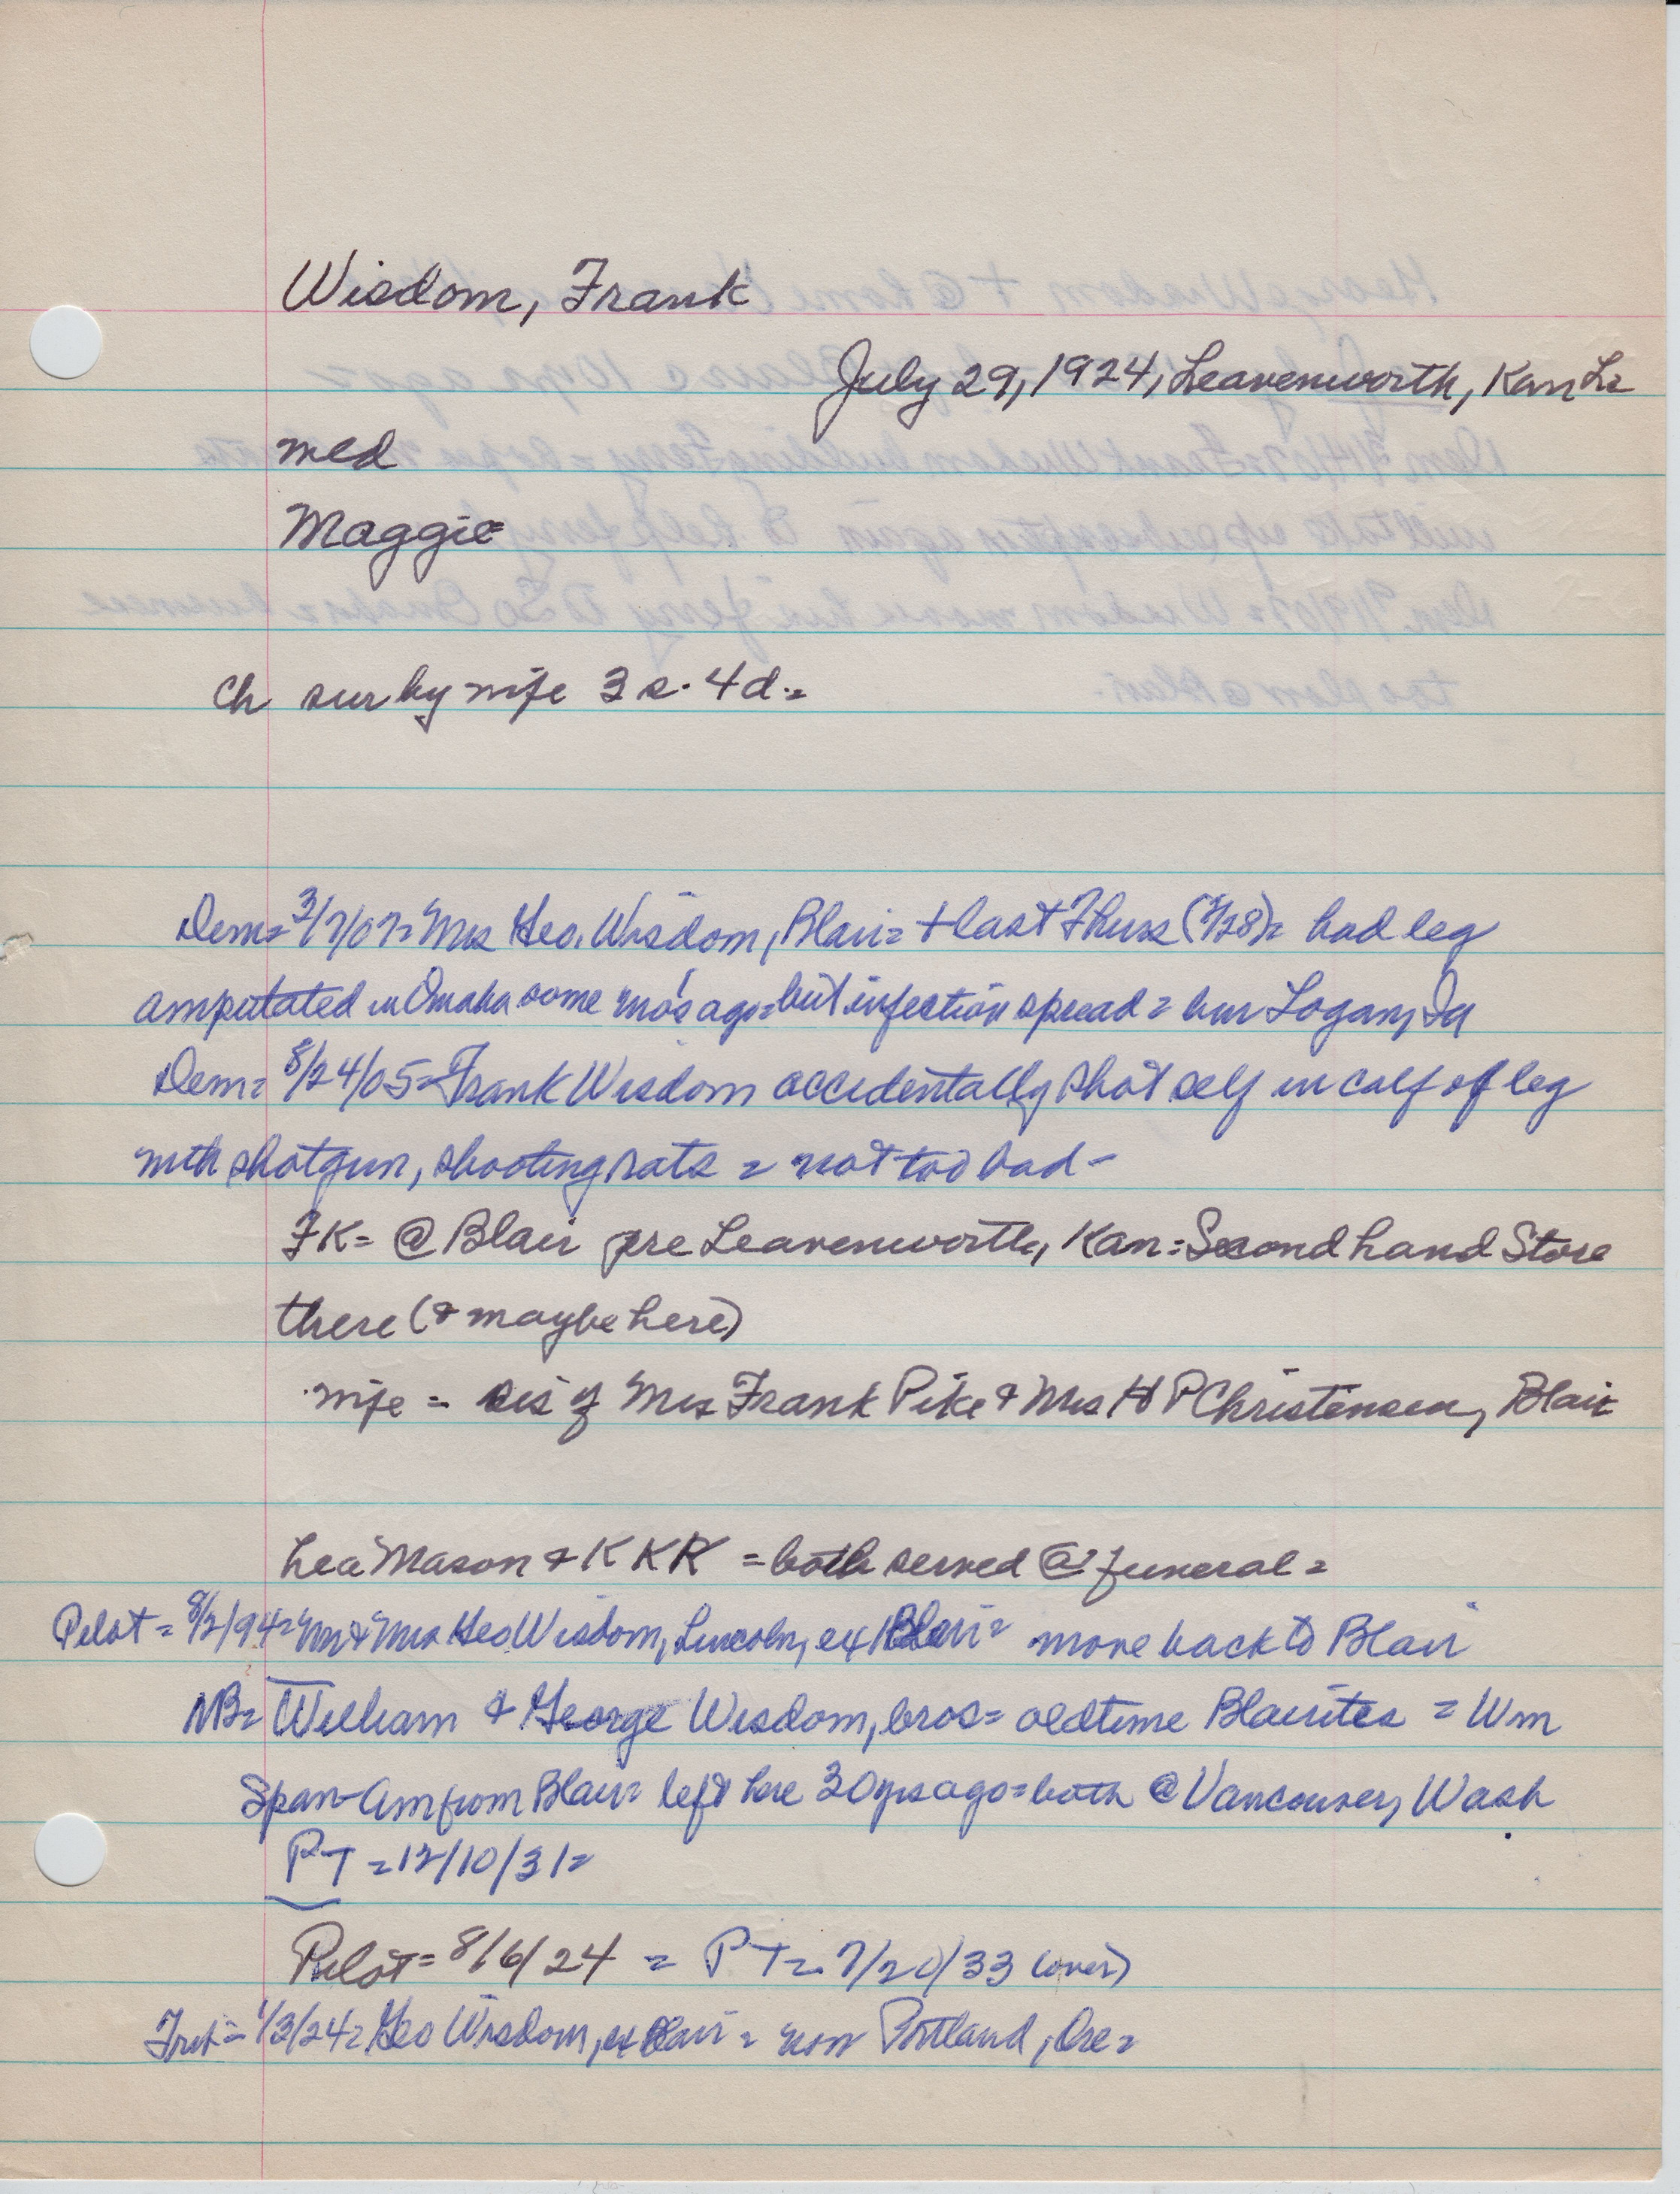 Wisdom, Frank
July 29, 1924, Leavenworth, Kan
med
Maggie
Ch sur by wife 3 s. 4 d. =
Dem = 3/7/07 = Mrs Geo. Wisdom, Blair = + last Thurs (2/28) = had leg
amputated in Omaha some mo's ago = but infection spread = bur Logan, Ia
Dem = 8/24/05 = Frank Wisdom accidentally shot self in calf of leg
with shotgun, shooting rats = not too bad -
FK = @ Blair pre Leavenworth, Kan = Second hand Store
there (& maybe here)
wife = sis of Mrs Frank Pike & Mrs H P Christensen, Blair
Mason & K K K = both served @ funeral =
Pilot = 8/2/94 = Mr & Mrs Geo Wisdom, Lincoln, ex Blair = move back to Blair
NB = William & George Wisdom, bros = oldtime Blairites = Wm
Span-Am from Blair = left here 30 yrs ago = both @ Vancouver, Wash
PT = 12/10/31 =
Pilot = 8/6/24 = PT = 7/20/33 (over)
1/3/24 = Geo Wisdom, ex Blair = now Portland, Ore =